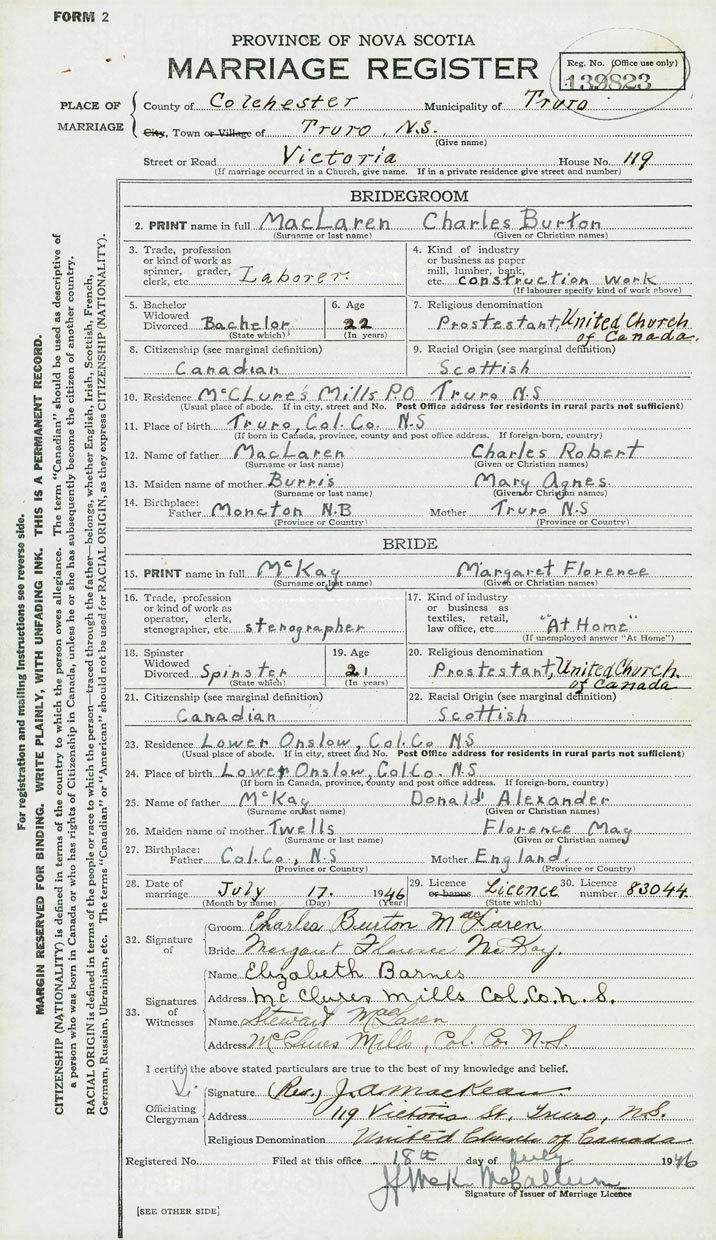 FORM 2
PROVINCE OF NOVA SCOTIA
MARRIAGE REGISTER
Reg. No. (Office use only)
139823
PLACE OF MARRIAGE
County of Colchester Municipality of Truro
City, Town or Village of Truro, N.S.
(Give name)
Street or Road Victoria House No. 119
(If marriage occurred in a Church, give name. If in a private residence give street and number)
BRIDEGROOM
2. PRINT name in full MacLaren Charles Burton
(Surname or last name) (Given or Christian names)
3. Trade, profession or kind of work as spinner, grader, clerk, etc. Laborer.
4. Kind of industry or business as paper mill, lumber, bank, etc. construction work
(If labourer specify kind of work above)
5. Bachelor Widowed Divorced Bachelor
(State which)
6. Age 22
(In years)
7. Religious denomination
Prostestant, United Church of Canada.
8. Citizenship (see marginal definition)
Canadian
9. Racial Origin (see marginal definition)
Scottish
10. Residence McClure's Mills P.O Truro N.S
(Usual place of abode. If in city, street and No. Post Office address for residents in rural parts not sufficient)
11. Place of birth Truro, Col. Co. N.S
(If born in Canada, province, county and post office address. If foreign-born, country)
12. Name of father MacLaren Charles Robert
(Surname or last name) (Given or Christian names)
13. Maiden name of mother Burris Mary Agnes.
(Surname or last name) (Given or Christian names)
14. Birthplace: Father Moncton N.B Mother Truro N.S
(Province or Country) (Province or Country)
BRIDE
15. PRINT name in full McKay Margaret Florence
(Surname or last name) (Given or Christian names)
16. Trade, profession or kind of work as operator, clerk, stenographer, etc. stenographer
17. Kind of industry or business as textiles, retail, law office, etc. "At Home"
(If unemployed answer "At Home")
18. Spinster Widowed Divorced Spinster
(State which)
19. Age 21
(In years)
20. Religious denomination
Prostestant, United Church of Canada
21. Citizenship (see marginal definition)
Canadian
22. Racial Origin (see marginal definition)
Scottish
23. Residence Lower Onslow, Col. Co NS
(Usual place of abode. If in city, street and No. Post Office address for residents in rural parts not sufficient)
24. Place of birth Lower Onslow, Col Co. N.S
(If born in Canada, province, county and post office address. If foreign-born, country)
25. Name of father McKay Donald Alexander
(Surname or last name) (Given or Christian names)
26. Maiden name of mother Twells Florence May
(Surname or last name) (Given or Christian names)
27. Birthplace: Father Col. Co., N.S Mother England.
(Province or Country) (Province or Country)
28. Date of marriage July 17. 1946
(Month by name) (Day) (Year)
29. Licence or banns Licence
(State which)
30. Licence number 83044
32. Signature of
Groom Charles Burton MacLaren
Bride Margaret Florence McKay.
33. Signatures of Witnesses
Name Elizabeth Barnes
Address McClures Mills Col. Co. N. S.
Name Stewart MacLaren
Address McClures Mills, Col. Co. N.S.
I certify the above stated particulars are true to the best of my knowledge and belief.
Officiating Clergyman
Signature (Rev.) J. A. MacKean
Address 119 Victoria St. Truro, N.S.
Religious Denomination United Church of Canada
Registered No. Filed at this office 18th day of July 1946
J McK McCallum
Signature of Issuer of Marriage Licence
[SEE OTHER SIDE]
For registration and mailing instructions see reverse side.
MARGIN RESERVED FOR BINDING. WRITE PLAINLY, WITH UNFADING INK. THIS IS A PERMANENT RECORD.
CITIZENSHIP (NATIONALITY) is defined in terms of the country to which the person owes allegiance. The term "Canadian" should be used as descriptive of
a person who was born in Canada or who has rights of Citizenship in Canada, unless he or she has subsequently become the citizen of another country.
RACIAL ORIGIN is defined in terms of the people or race to which the person—traced through the father—belongs, whether English, Irish, Scottish, French,
German, Russian, Ukrainian, etc. The terms "Canadian" or "American" should not be used for RACIAL ORIGIN, as they express CITIZENSHIP (NATIONALITY).